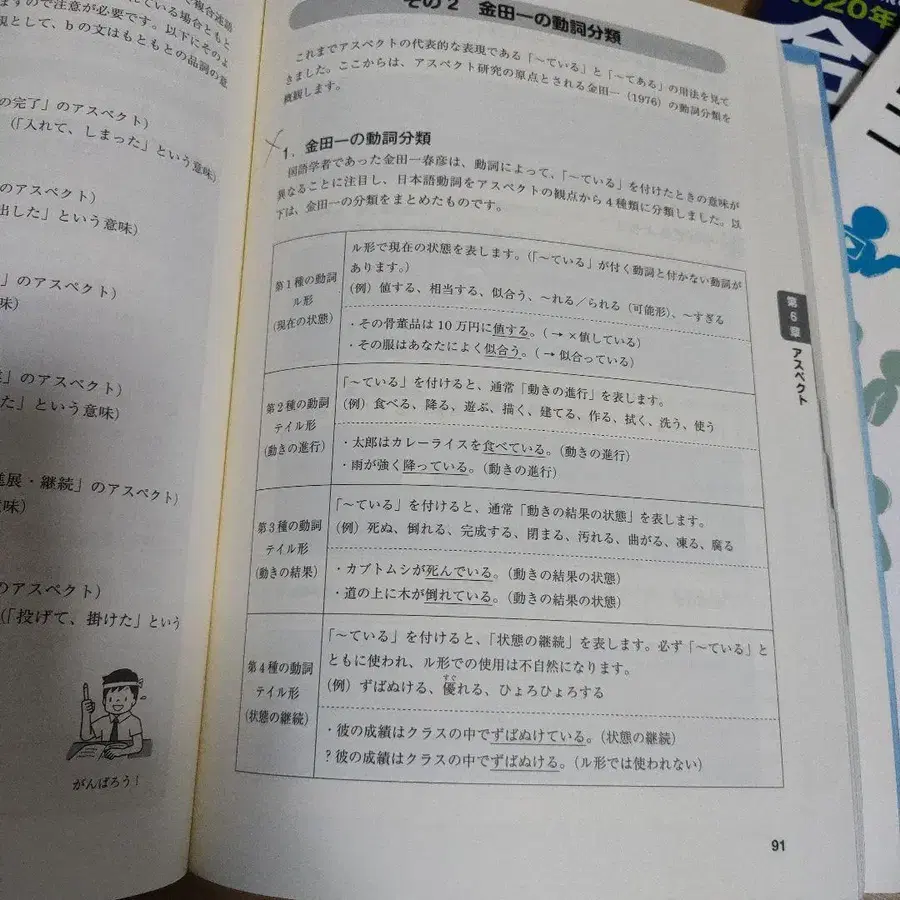 で複合述語
れている場合ともと
ますので注意が必要です。以下にそのよ
現として、bの文はもともとの品詞の意
の完了」のアスペクト)
(「入れて、しまった」という意味)
のアスペクト)
出した」という意味)
」のアスペクト)
味)
」のアスペクト)
た」という意味)
進展・継続」のアスペクト)
意味)
のアスペクト)
(「投げて、掛けた」という
がんばろう!
その2 金田一の動詞分類
これまでアスペクトの代表的な表現である「~ている」と「~てある」の用法を見て
きました。ここからは、アスペクト研究の原点とされる金田一(1976)の動詞分類を
概観します。
1. 金田一の動詞分類
国語学者であった金田一春彦は、動詞によって、「~ている」を付けたときの意味が
異なることに注目し、日本語動詞をアスペクトの観点から4種類に分類しました。以
下は、金田一の分類をまとめたものです。
第1種の動詞
ル形
(現在の状態)
ル形で現在の状態を表します。(「~ている」が付く動詞と付かない動詞が
あります。)
(例)値する、相当する、似合う、~れる/られる(可能形)、~すぎる
・その骨董品は10万円に値する。(→×値している)
・その服はあなたによく似合う。(→似合っている)
第2種の動詞
テイル形
(動きの進行)
「~ている」を付けると、通常「動きの進行」を表します。
(例)食べる、降る、遊ぶ、描く、建てる、作る、拭く、洗う、使う
・太郎はカレーライスを食べている。(動きの進行)
・雨が強く降っている。(動きの進行)
第3種の動詞
テイル形
(動きの結果)
「~ている」を付けると、通常「動きの結果の状態」を表します。
(例)死ぬ、倒れる、完成する、閉まる、汚れる、曲がる、凍る、腐る
・カブトムシが死んでいる。(動きの結果の状態)
・道の上に木が倒れている。(動きの結果の状態)
第4種の動詞
テイル形
(状態の継続)
「~ている」を付けると、「状態の継続」を表します。必ず「~ている」と
ともに使われ、ル形での使用は不自然になります。
(例)ずばぬける、優れる、ひょろひょろする
すぐ
・彼の成績はクラスの中でずばぬけている。(状態の継続)
?彼の成績はクラスの中でずばぬける。(ル形では使われない)
第6章 アスペクト
91
2020年
合